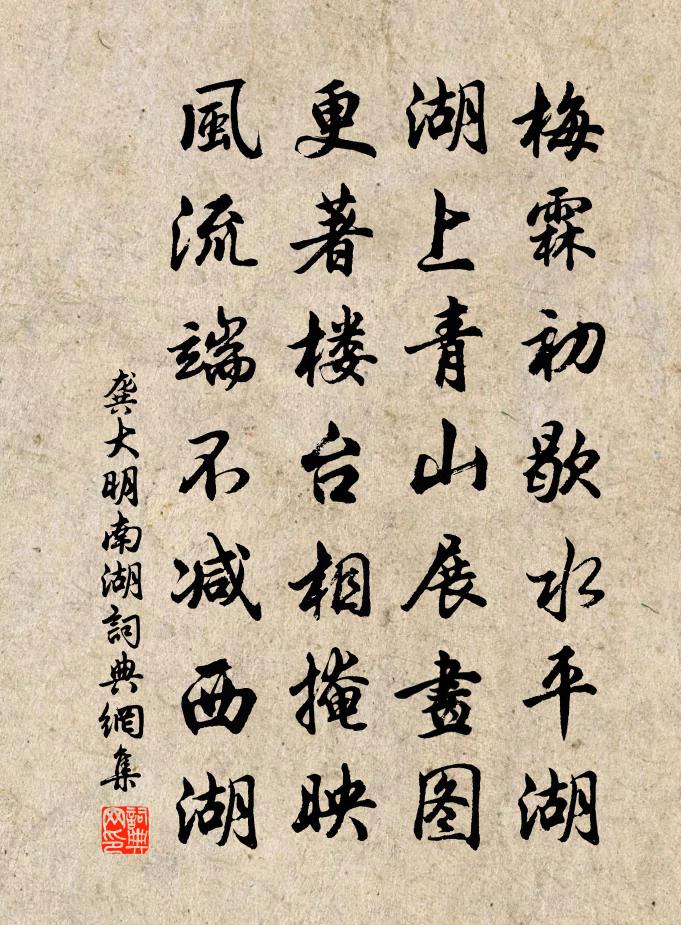 梅霖初歇水平湖
湖上青山展畫图
更著楼台相掩映
風流端不减西湖
龔大明南湖詞典網集
詞典網印